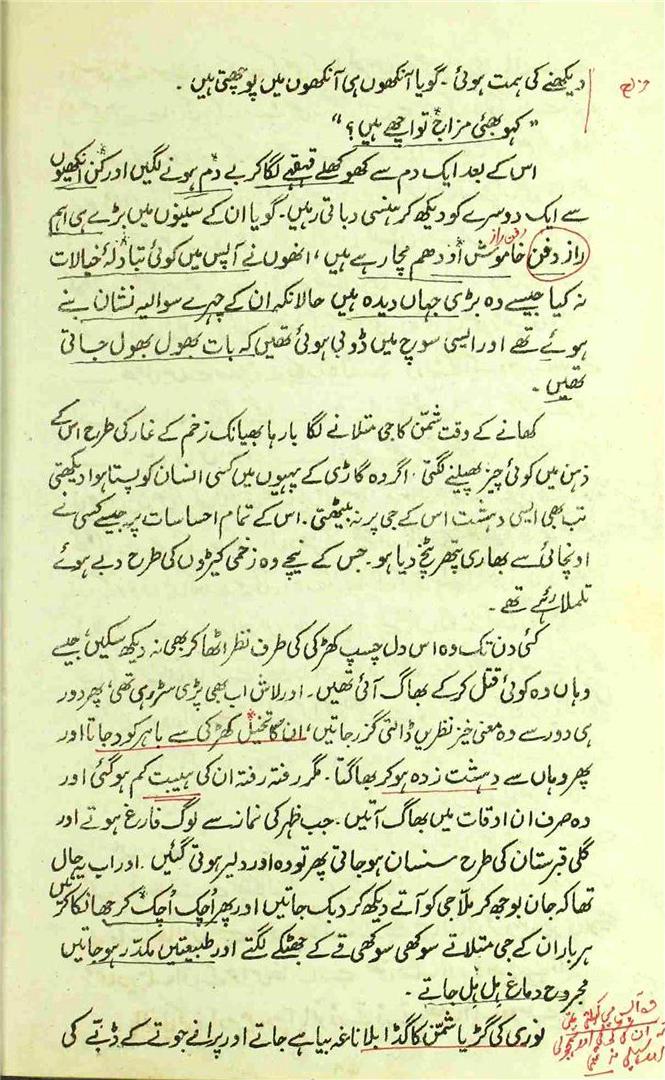 دیکھنے کی ہمت ہوئی ۔ گویا آنکھوں ہی آنکھوں میں پوچھتی ہیں ۔
"کہو بھئی مزاج تو اچھے ہیں؟"
اس کے بعد ایک دم سے کھوکھلے قہقہے لگا کر بے دم ہونے لگیں اور کن انکھیوں
سے ایک دوسرے کو دیکھ کر ہنسی دباتی رہیں۔ گویا ان کے سینوں میں بڑے ہی اہم
دفن راز
راز دفن خاموش اودھم مچا رہے ہیں، انھوں نے آپس میں کوئی تبادلۂ خیالات
نہ کیا جیسے وہ بڑی جہاں دیدہ ہیں حالانکہ ان کے چہرے سوالیہ نشان بنے
ہوئے تھے اور ایسی سوچ میں ڈوبی ہوئی تھیں کہ بات بھول بھول جاتی
تھیں ۔
کھانے کے وقت شمّن کا جی متلانے لگا بار ہا بھیانک زخم کے غار کی طرح اس کے
ذہن میں کوئی چیز پھیلنے لگتی ۔ اگر وہ گاڑی کے پہیوں میں کسی انسان کو پستا ہوا دیکھتی
تب بھی ایسی دہشت اس کے جی پر نہ بیٹھتی ۔ اس کے تمام احساسات پر جیسے کسی نے
اونچائی سے بھاری پتھر پٹخ دیا ہو۔ جس کے نیچے وہ زخمی کیڑوں کی طرح دبے ہوئے
تلملا رہے تھے ۔
کئی دن تک وہ اس دل چسپ کھڑکی کی طرف نظر اٹھا کر بھی نہ دیکھ سکیں، جیسے
وہاں وہ کوئی قتل کر کے بھاگ آئی تھیں ۔ اور لاش اب بھی پڑی سڑ رہی تھی، پھر دور
ہی دور سے وہ معنی خیز نظریں ڈالتی گزر جاتیں، ان کا تخیل کھڑکی سے باہر کود جاتا اور
پھر وہاں سے دہشت زدہ ہو کر بھاگتا ۔ مگر رفتہ رفتہ ان کی ہیبت کم ہو گئی اور
وہ صرف ان اوقات میں بھاگ آتیں ۔ جب ظہر کی نماز سے لوگ فارغ ہوتے اور
گلی قبرستان کی طرح سنسان ہو جاتی پھر تو وہ اور دلیر ہوتی گئیں ۔ اور اب یہ حال
تھا کہ جان بوجھ کر ملّا جی کو آتے دیکھ کر دبک جاتیں اور پھر اُچک اُچک کر جھانکا کرتیں
ہر بار ان کے جی متلاتے سوکھی سوکھی قے کے جھٹکے لگتے اور طبیعتیں مکدّر ہو جاتیں
مجروح دماغ ہل ہل جاتے ۔
نوری کی گڑیا شمّن کا گڈا بلا ناغہ بیاہے جاتے اور پرانے جوتے کے ڈبّے کی